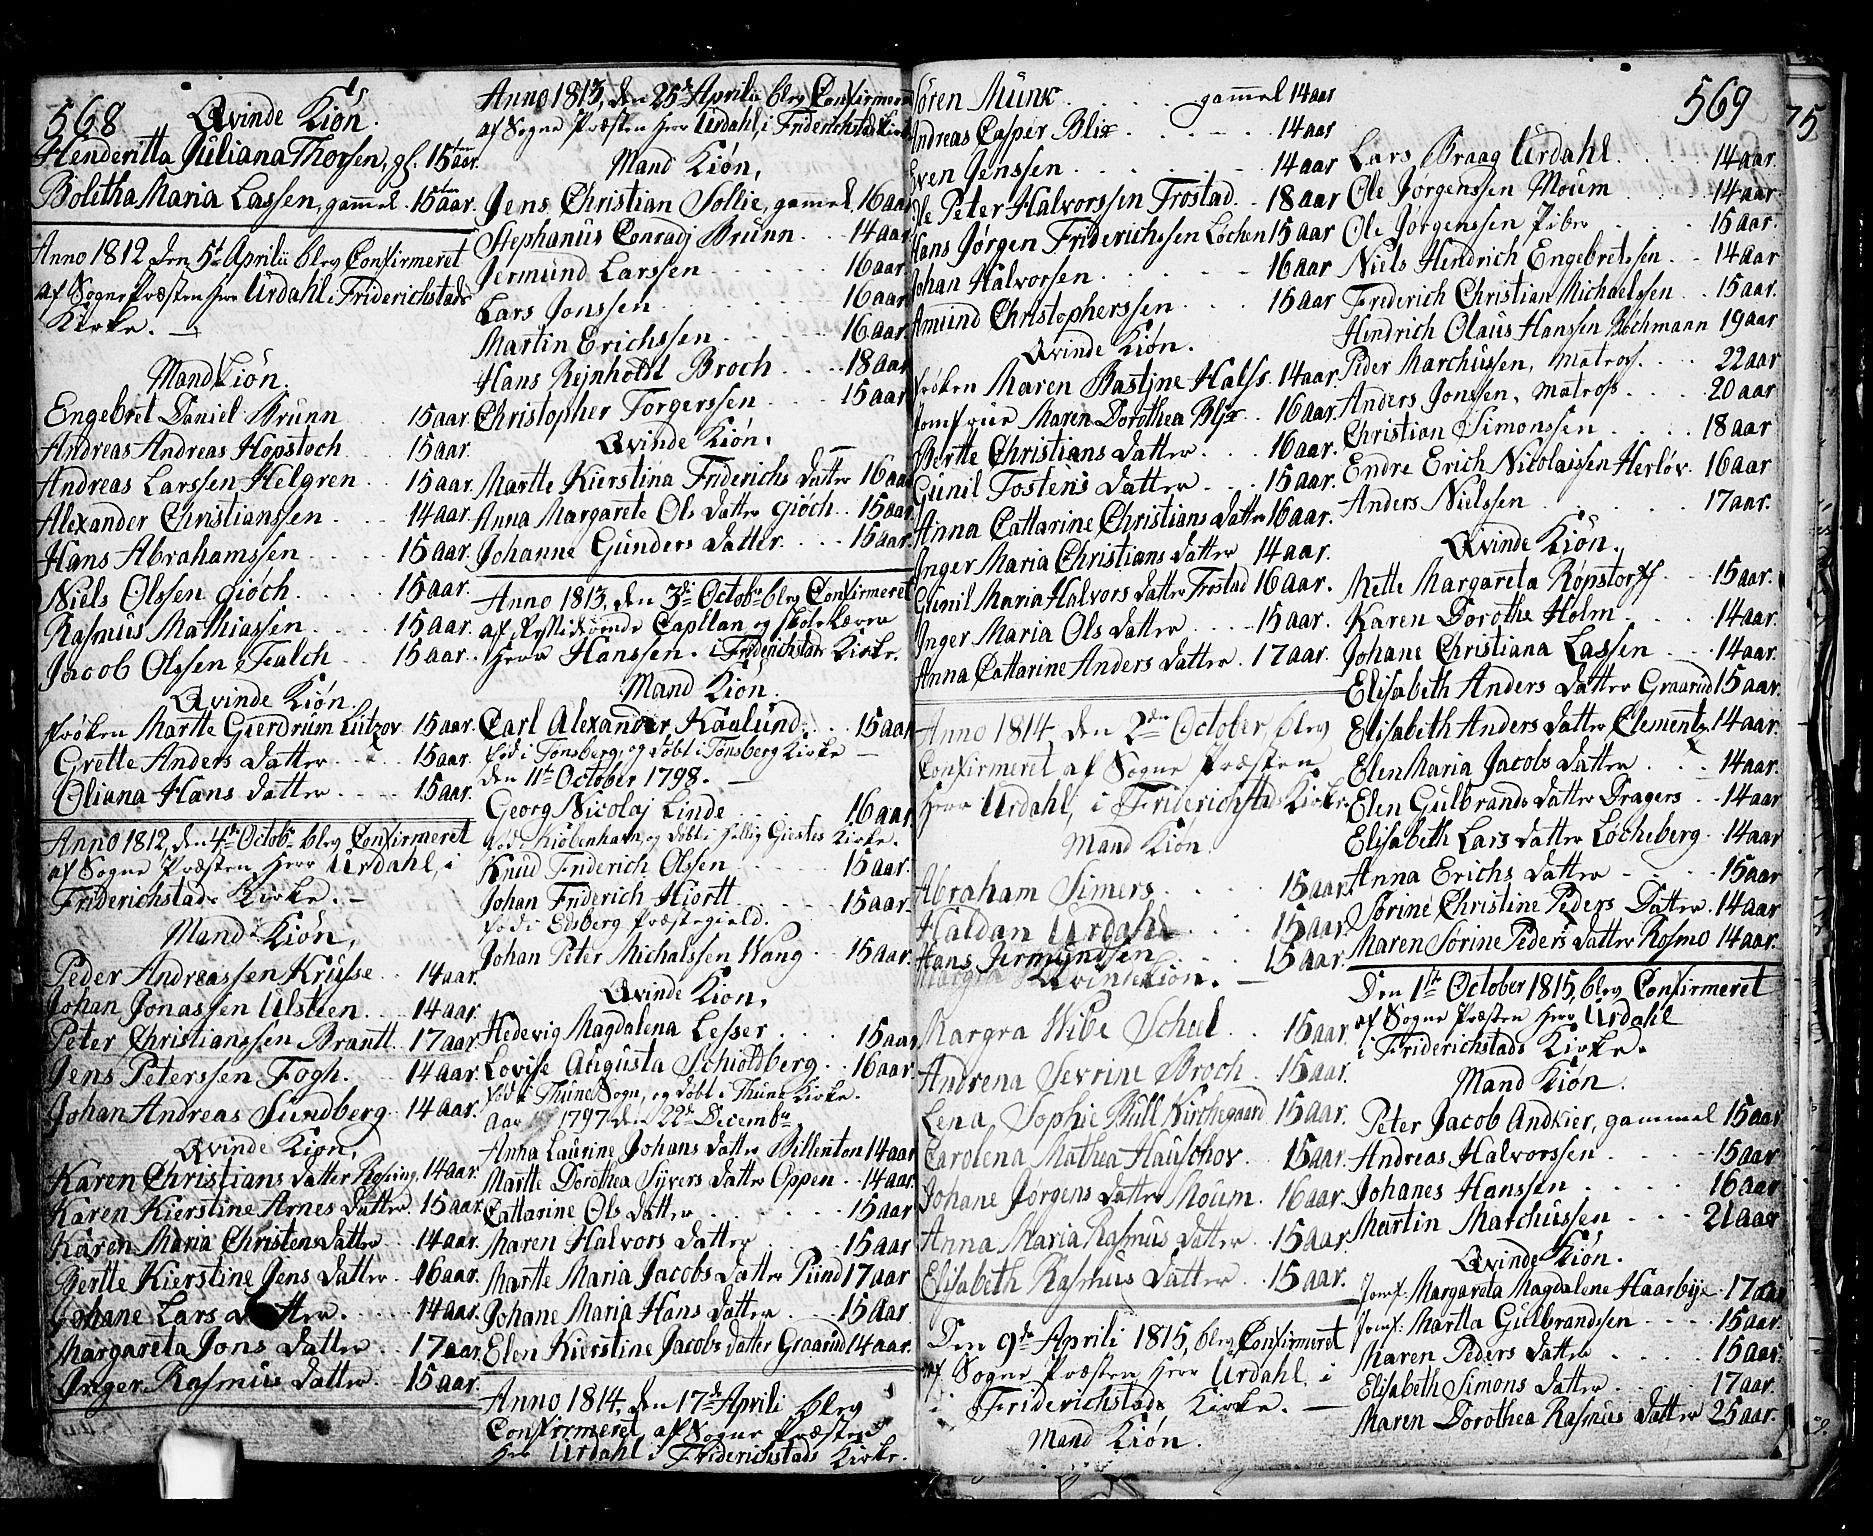 568
Qvinde Kiøn.
Henderitta Juliana Thorsen, gl. 15 aar.
Boletha Maria Lassen, gammel. 15 aar.
Anno 1812 den 5t Aprilii blev Confirmeret
af Sogne Præsten Herr Urdahl i Friderichstads
Kirke. —
Mand Kiøn.
Engebret Daniel Brunn 15 aar.
Andreas Andreas Hopstoch 15 aar.
Andreas Larssen Helgren 15 aar.
Alexander Christianssen 14 aar.
Hans Abrahamssen 15 aar.
Niels Olssen Gioch 15 aar.
Rasmus Mathiassen 15 aar.
Jacob Olssen Falch 15 aar.
Qvinde Kiøn.
Frøken Martte Gierdrum Lützov 15 aar.
Grette Anders Datter 15 aar.
Oliana Hans Datter 15 aar.
Anno 1812, den 4de Octobr blev Confirmeret
af Sogne Præsten Herr Urdahl, i
Friderichstads Kirke. —
Mand Kiøn,
Peder Andreassen Kruse 14 aar.
Johan Jonassen Ulsteen 14 aar.
Peter Christianssen Brantt. 17 aar.
Jens Peterssen Fogh. 14 aar.
Johan Andreas Sundberg 14 aar.
Qvinde Kiøn,
Karen Christians datter 14 aar.
Karen Kierstine Arnes Datter. 15 aar.
Karen Maria Christens Datter 14 aar.
Bertte Kierstine Jens Datter 16 aar.
Johane Lars Datter. 14 aar.
Margareta Jons Datter 17 aar.
Inger Rasmus Datter 15 aar.
Anno 1813, den 25de Aprilii blev Confirmeret
af Sogne Præsten Herr Urdahl, i Friderichstads Kirke
Mand Kiøn,
Jens Christian Sollie, gammel, 16 aar
Stephanus Conradj Brunn 14 aar.
Jermund Larssen 16 aar.
Lars Jonssen 16 aar.
Martin Erichssen 16 aar.
Hans Rejnholdt Broch 18 aar
Christopher Torgerssen 15 aar.
Qvinde Kiøn.
Martte Kierstina Friderichs Datter 16 aar
Anna Margarete Ols Datter Giöch 15 aar.
Johanne Gunders Datter 15 aar.
Anno 1813, den 3die Octobr blev Confirmeret
af Residerende Capellan og Skole Lærer
Herr Hanssen. i Friderichstads Kirke.
Mand Kiøn.
Carl Alexander Kaalund, 15 aar
Fød i Tønsberg, og Døbt i Tønsberg Kirke —
den 11te October 1798. —
Georg Nicolaj Linde 16 aar
Fød i Kiøbenhavn, og Døbt i Hellig Giestes Kirke.
Knud Friderich Olssen 15 aar.
Johan Friderich Hiortt 15 aar.
Fød i Edsberg Præstegield.
Johan Peter Michalssen Wang 15 aar.
Qvinde Kiøn,
Hedevig Magdalena Lesser 15 aar,
Lovise Augusta Schioldberg. 16 aar.
Fød i Thune Sogn, og Døbt i Thune Kirke.
Aar 1797 den 22de Decembr
Anna Laurine Johans Datter Billenton 14 aar
Martte Dorothea Sÿvers Datter Oppen 14 aar.
Cattarine Ols Datter 15 aar
Maren Halvors Datter 15 aar
Martte Maria Jacobs Datter Pünd 17 aar
Johane Maria Hans Datter 15 aar
Elen Kierstine Jacobs Datter Graarud 14 aar.
Anno 1814, den 17de Aprili blev
Confirmeret, af Sogne Præsten
Herr Urdahl i Friderichstads Kirke.
569
Søren Munk gammel 14 aar
Andreas Casper Blix 14 aar
Even Jenssen 14 aar
Ole Peter Halvorssen Frostad 18 aar
Hans Jørgen Friderichssen Lochen 15 aar
Johan Halvorsen 16 aar
Amund Christopherssen 15 aar
Qvinde Kiøn.
Frøken Maren Bastjne Halss 14 aar.
Jomfrue Maren Dorothea Blix 16 aar.
Bertte Christians Datter 16 aar.
Gunil Tostens Datter 15 aar.
Anna Cattarine Christians Datter 16 aar.
Inger Maria Christians Datter 14 aar.
Gunil Maria Halvors Datter Frostad 16 aar.
Inger Maria Ols Datter 15 aar.
Anna Cattarine Anders Datter. 17 aar.
Anno 1814 den 2den October, blev
Confirmeret af Sogne Præsten
Herr Urdahl, i Friderichstads Kirke
Mand Kiøn
Abraham Simers 15 aar.
Haldan Urdahl 15 aar.
Hans Jermundssen 15 aar.
Qvinde Kiøn. —
Margra Wibe Scheel 15 aar.
Andrena Sevrine Broch 15 aar.
Lena Sophie Bull Kirchegaard 15 aar.
Carolena Mathea Hauschov 15 aar.
Johane Jørgens Datter Moum. 16 aar.
Anna Maria Rasmus Datter 15 aar.
Elisabeth Rasmus Datter 15 aar.
Den 9de Aprili 1815, blev Confirmeret
af Sogne Præsten Herr Urdahl, i
i Friderichstads Kirke. —
Mand Kiøn.
Lars Braag Urdahl 14 aar.
Ole Jørgenssen Moum 14 aar.
Ole Jørgenssen Piber 15 aar.
Niels Hendrich Engebretssen 14 aar
Frederich Christian Michaelssen 15 aar.
Hindrich Olaus Hanssen Bochmann 19 aar
Pider Marchussen, Matros. 22 aar
Anders Jonssen, Matros 20 aar
Christian Simonssen 18 aar
Endre Erich Nicolaissen Herlöv 16 aar
Anders Nielssen 17 aar.
Qvinde Kiön.
Mette Margareta Röpstorff 15 aar.
Karen Dorothe Holm 14 aar.
Johane Christiana Lassen 14 aar.
Elisabeth Anders Datter Graarud 15 aar.
Elisabeth Anders Datter Clementz 14 aar.
Elen Maria Jacobs Datter 14 aar.
Elen Gulbrands Datter Dragers 14 aar
Elisabeth Lars Datter Locheberg 14 aar
Anna Erichs Datter 15 aar
Sørine Christine Peders Datter 14 aar
Maren Sørine Peders Datter Rosmo 14 aar.
Den 1ste October 1815, blev Confirmeret
af Sogne Præsten Herr Urdahl
i Friderichstads Kirke.
Mand Kiøn.
Peter Jacob Andkier, gammel 15 aar
Andreas Halvorssen 15 aar
Johanes Hanssen 16 aar
Martin Marchussen 21 aar
Qvinde Kiøn.
Jomf. Margareta Magdalene Haarbye 17 aar
Jomf: Martta Gulbrandssen 15 aar.
Maren Peders Datter 15 aar.
Elisabeth Simons Datter 17 aar.
Maren Dorothea Rasmus Datter 25 aar.
75